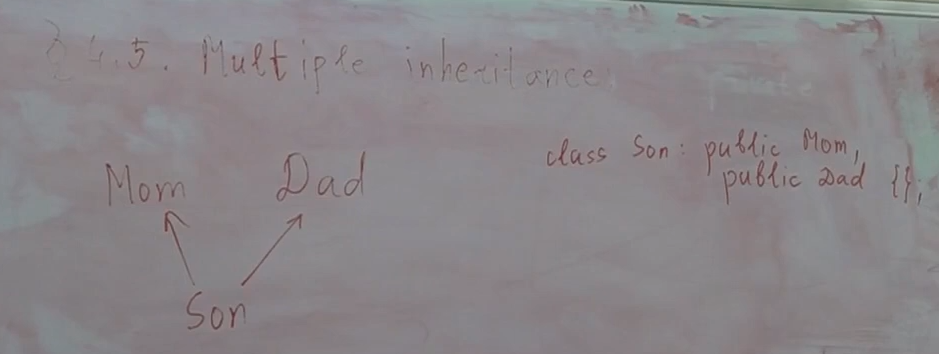 § 4.5. Multiple inheritance.
Mom Dad
Son
class Son: public Mom,
public Dad {};